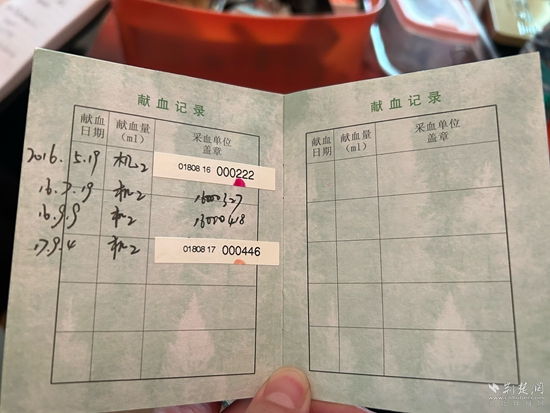 献血记录
献血日期 献血量(ml) 采血单位盖章
2016.5.19 机2 01808 16 000222
16.7.19 机2 16000327
16.9.9 机2 16000418
17.9.4 机2 01808 17 000446
献血记录
献血日期 献血量(ml) 采血单位盖章
荆楚网